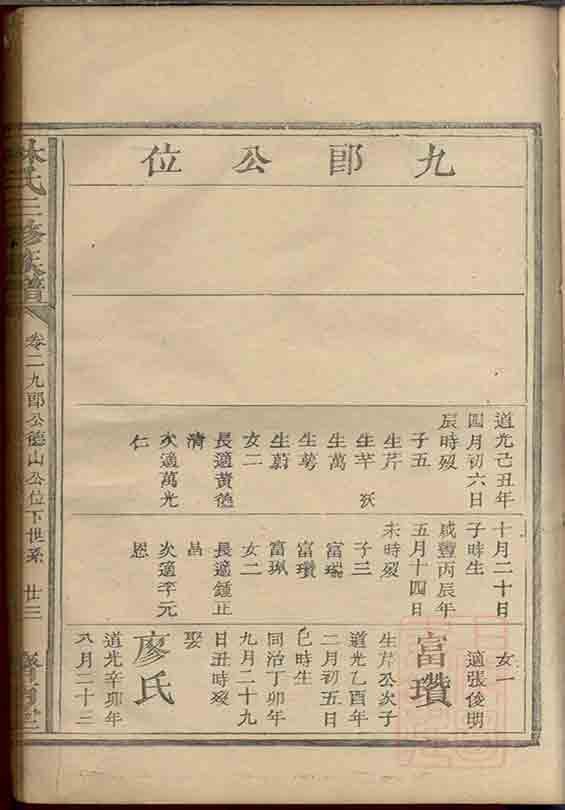 九郎公位
道光己丑年
四月初六日
辰時歿
子五
生芹
生芊 殀
生萬
生蕚
生蔚
女二
長適黃德
清
次適萬光
仁
十月二十日
子時生
咸豐丙辰年
五月十四日
未時歿
子三
富瑞
富瓚
富珮
女二
長適鍾正
昌
次適李元
恩
女一
適張俊明
富瓚
生芹公次子
道光乙酉年
二月初五日
巳時生
同治丁卯年
九月二十九
日丑時歿
娶
廖氏
道光辛卯年
八月二十三
林氏三修族譜
卷二九郎公德山公位下世系
廿三